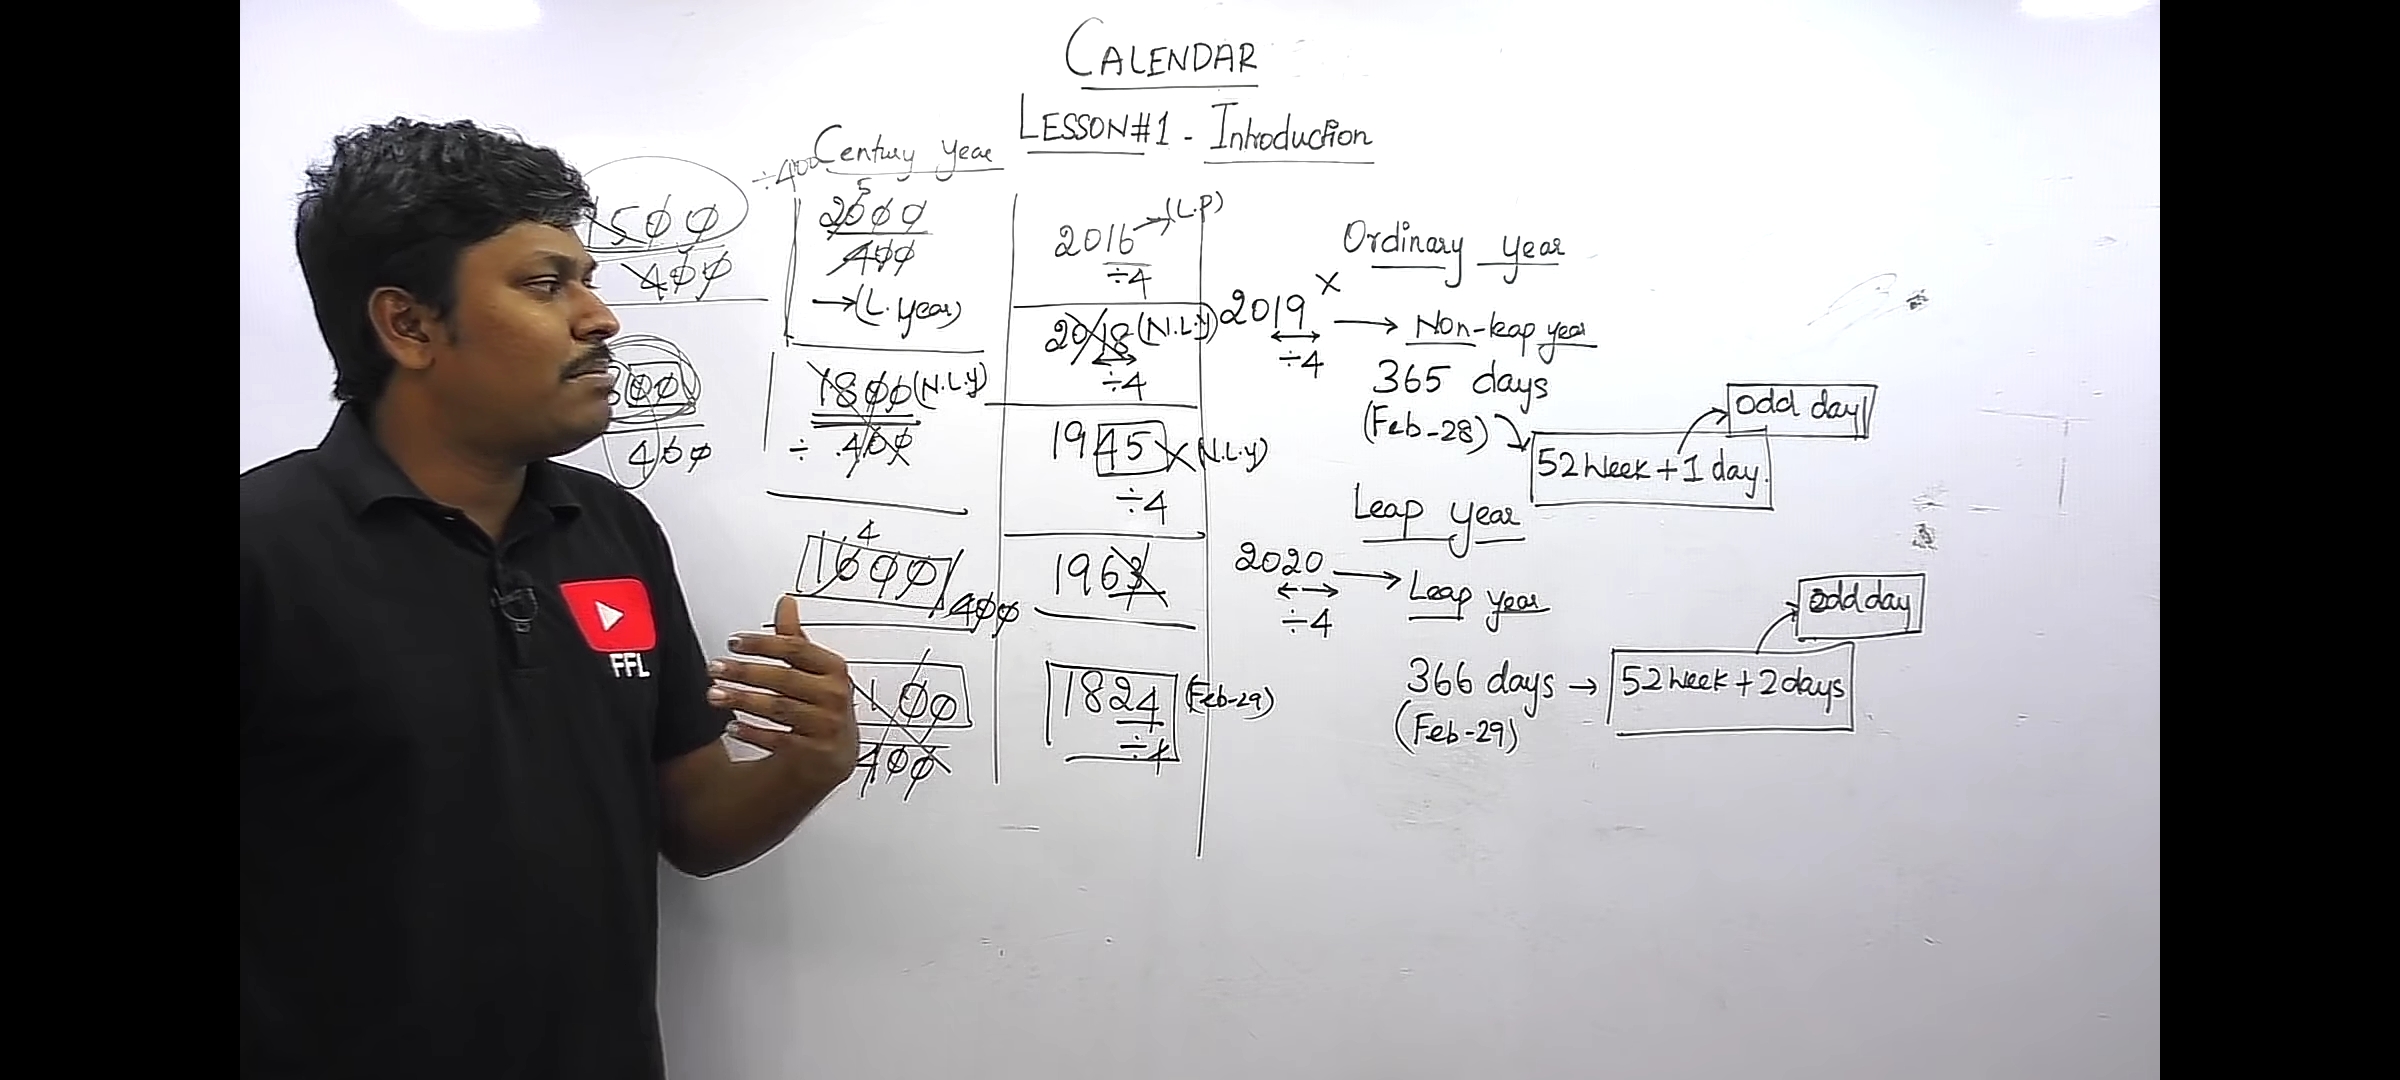 CALENDAR
LESSON#1 - Introduction
Century year
÷400
1500
400
00
400
5
2000
400
→(L.year)
1800(N.L.y)
÷ 400
4
1600
400
00
400
2016→(L.P)
÷4
2018(N.L.y)
÷4
1945X(N.L.y)
÷4
1963
1824(Feb-29)
÷4
Ordinary year
2019 X → Non-leap year
÷4
365 days
(Feb-28)
52 Week + 1 day.
odd day
Leap year
2020 → Leap year
÷4
366 days → 52 Week + 2 days
(Feb-29)
odd day
FFL